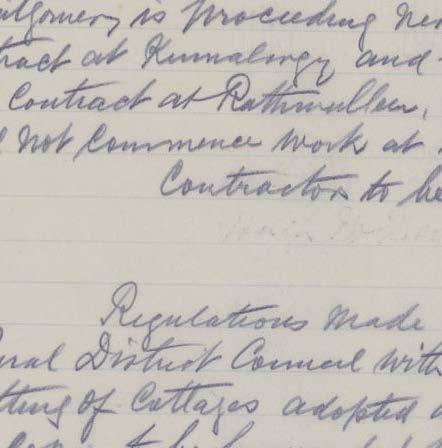 tgomery is proceeding
tract at Kinnalargy and
Contract at Rathmullen,
not Commence work at
Contractors to be
Regulations made
ural District Council with
tting of Cottages adopted